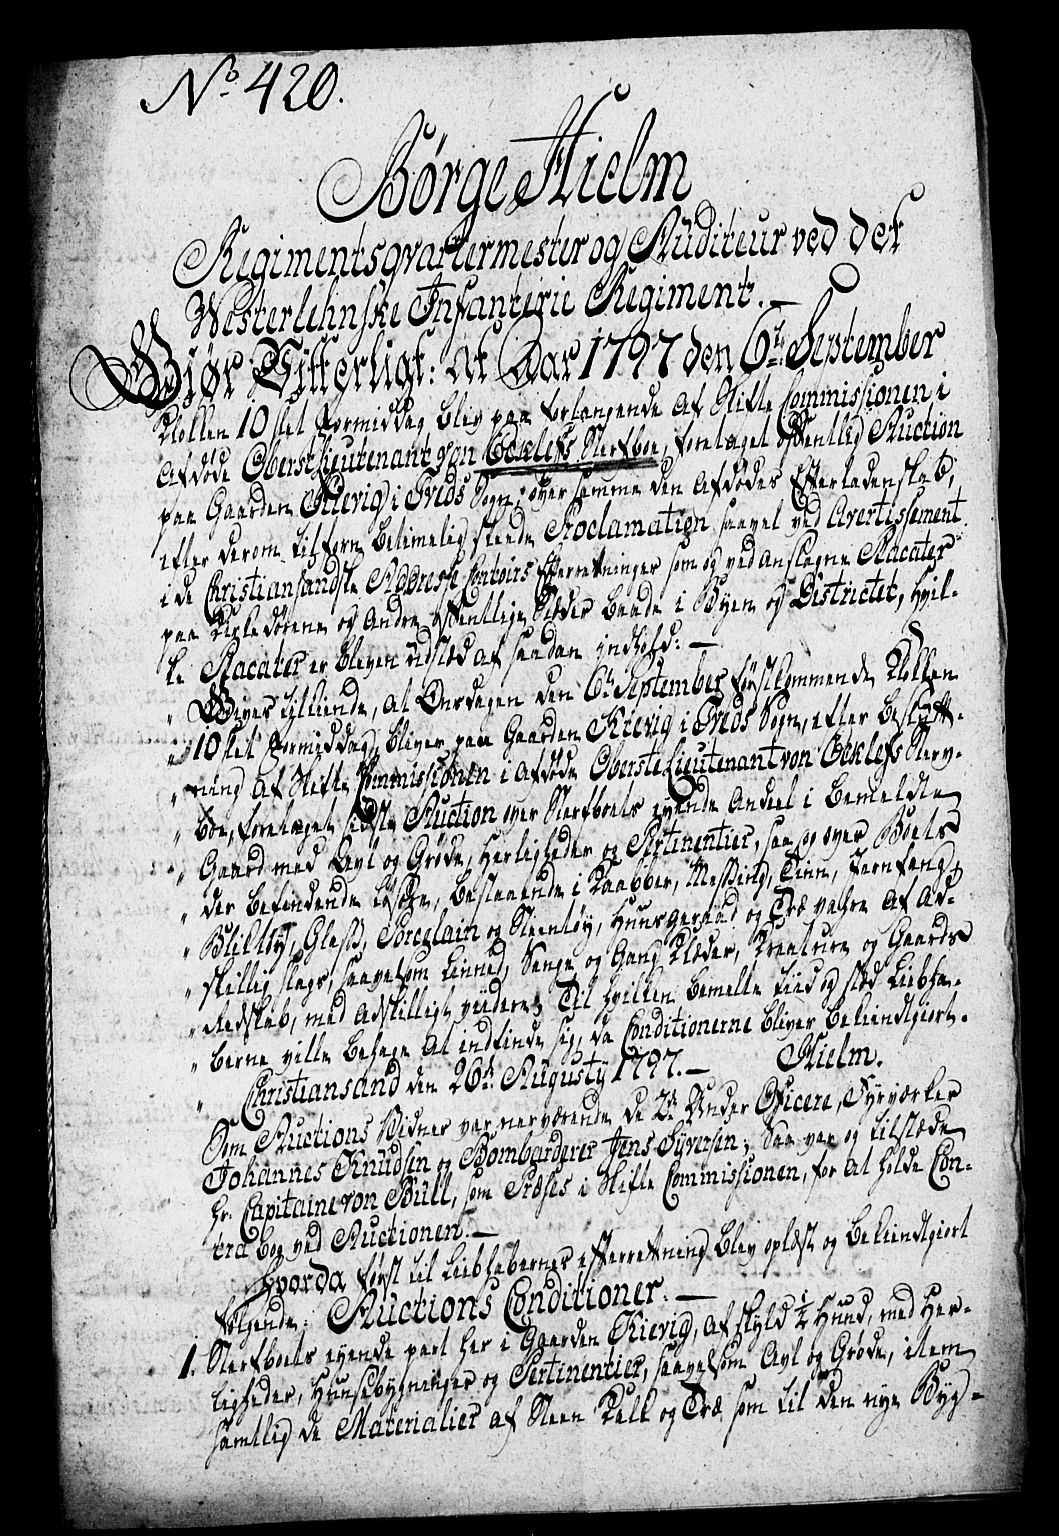 No 420.
Børge Hielm
Regimentsqvartermester og Auditeur ved det
Westerlehnske Infanterie Regiment. —
Gjør Vitterligt: At Aar 1797 den 6te September
Klokken 10 slet Formiddag blev paa forlangende af Skifte Commissionen i
afdøde Oberstlieutenant von Ecklefs Sterfboe, foretaget offentlig Auction
paa Gaarden Kievig i Tveds Sogn, over samme den afdødes Efterladenskab,
efter derom tilforn betimelig skeede Proclamation saavel ved Avertissement
i de Christiansandske Addresse Contoirs Efterretninger som og ved anslagne Placater
paa Kirkedørene og andre offentlige Stæder baade i Byen og Districtet, hvil-
ke Placater er bleven udstæd af saadan indhold: —
„ Gives tilkiende, at Onsdagen den 6te September førstkommende Klokken
„ 10 slet Formiddag, bliver paa Gaarden Kievig i Tveds Sogn, efter beslutt-
„ ning af Skifte Commissionen i afdøde Oberstelieutenant von Ecklefs Sterv-
„ boe, foretaget sidste Auction over Sterfboets eyende Andeel i bemeldte
„ Gaard med Avl og Grøde, Herligheder og Pertinentier, saa og over Boets
„ der befindende Løsøre, bestaaende i Kaabber, Messing, Tinn, Jernfang,
„ Bliktøy, Glass, Porcelain og Steentøy, Huusgeraad og Træ vahre af ad-
„ skillig slags, saavelsom Linned, Senge og Gang Klæder, Kreature og Gaards
„ Redskab, med adskilligt viidere; Til hvilken bemelte tiid og stæd Liebha-
„ berne ville behage at indfinde sig, da Conditionerne bliver bekiendtgiort.
„ Christiansand den 26de Augusty 1797. — Hielm.
Som Auctions Vidner var nerværende de 2de Under Officere, Fyrværker
Johannes Knudsen og Bombarderer Jens Syversen; Saa var og tilstæde
Hr. Capitaine von Bull, som Præses i Skifte Commissionen, for at holde Con-
tra bog ved Auctionen. —
Hvorda først til Liebhabernes efterretning blev oplæst og bekiendtgiort
følgende: Auctions Conditioner. —
1. Sterfboets eyende part her i Gaarden Kievig, af skyld ½ Hund, med Her-
ligheder, Huusebygninger og Pertinentier, saavelsom Avl og Grøde, item
samtlig de Materialier af Steen Kalk og Træ som til den nye Byg-